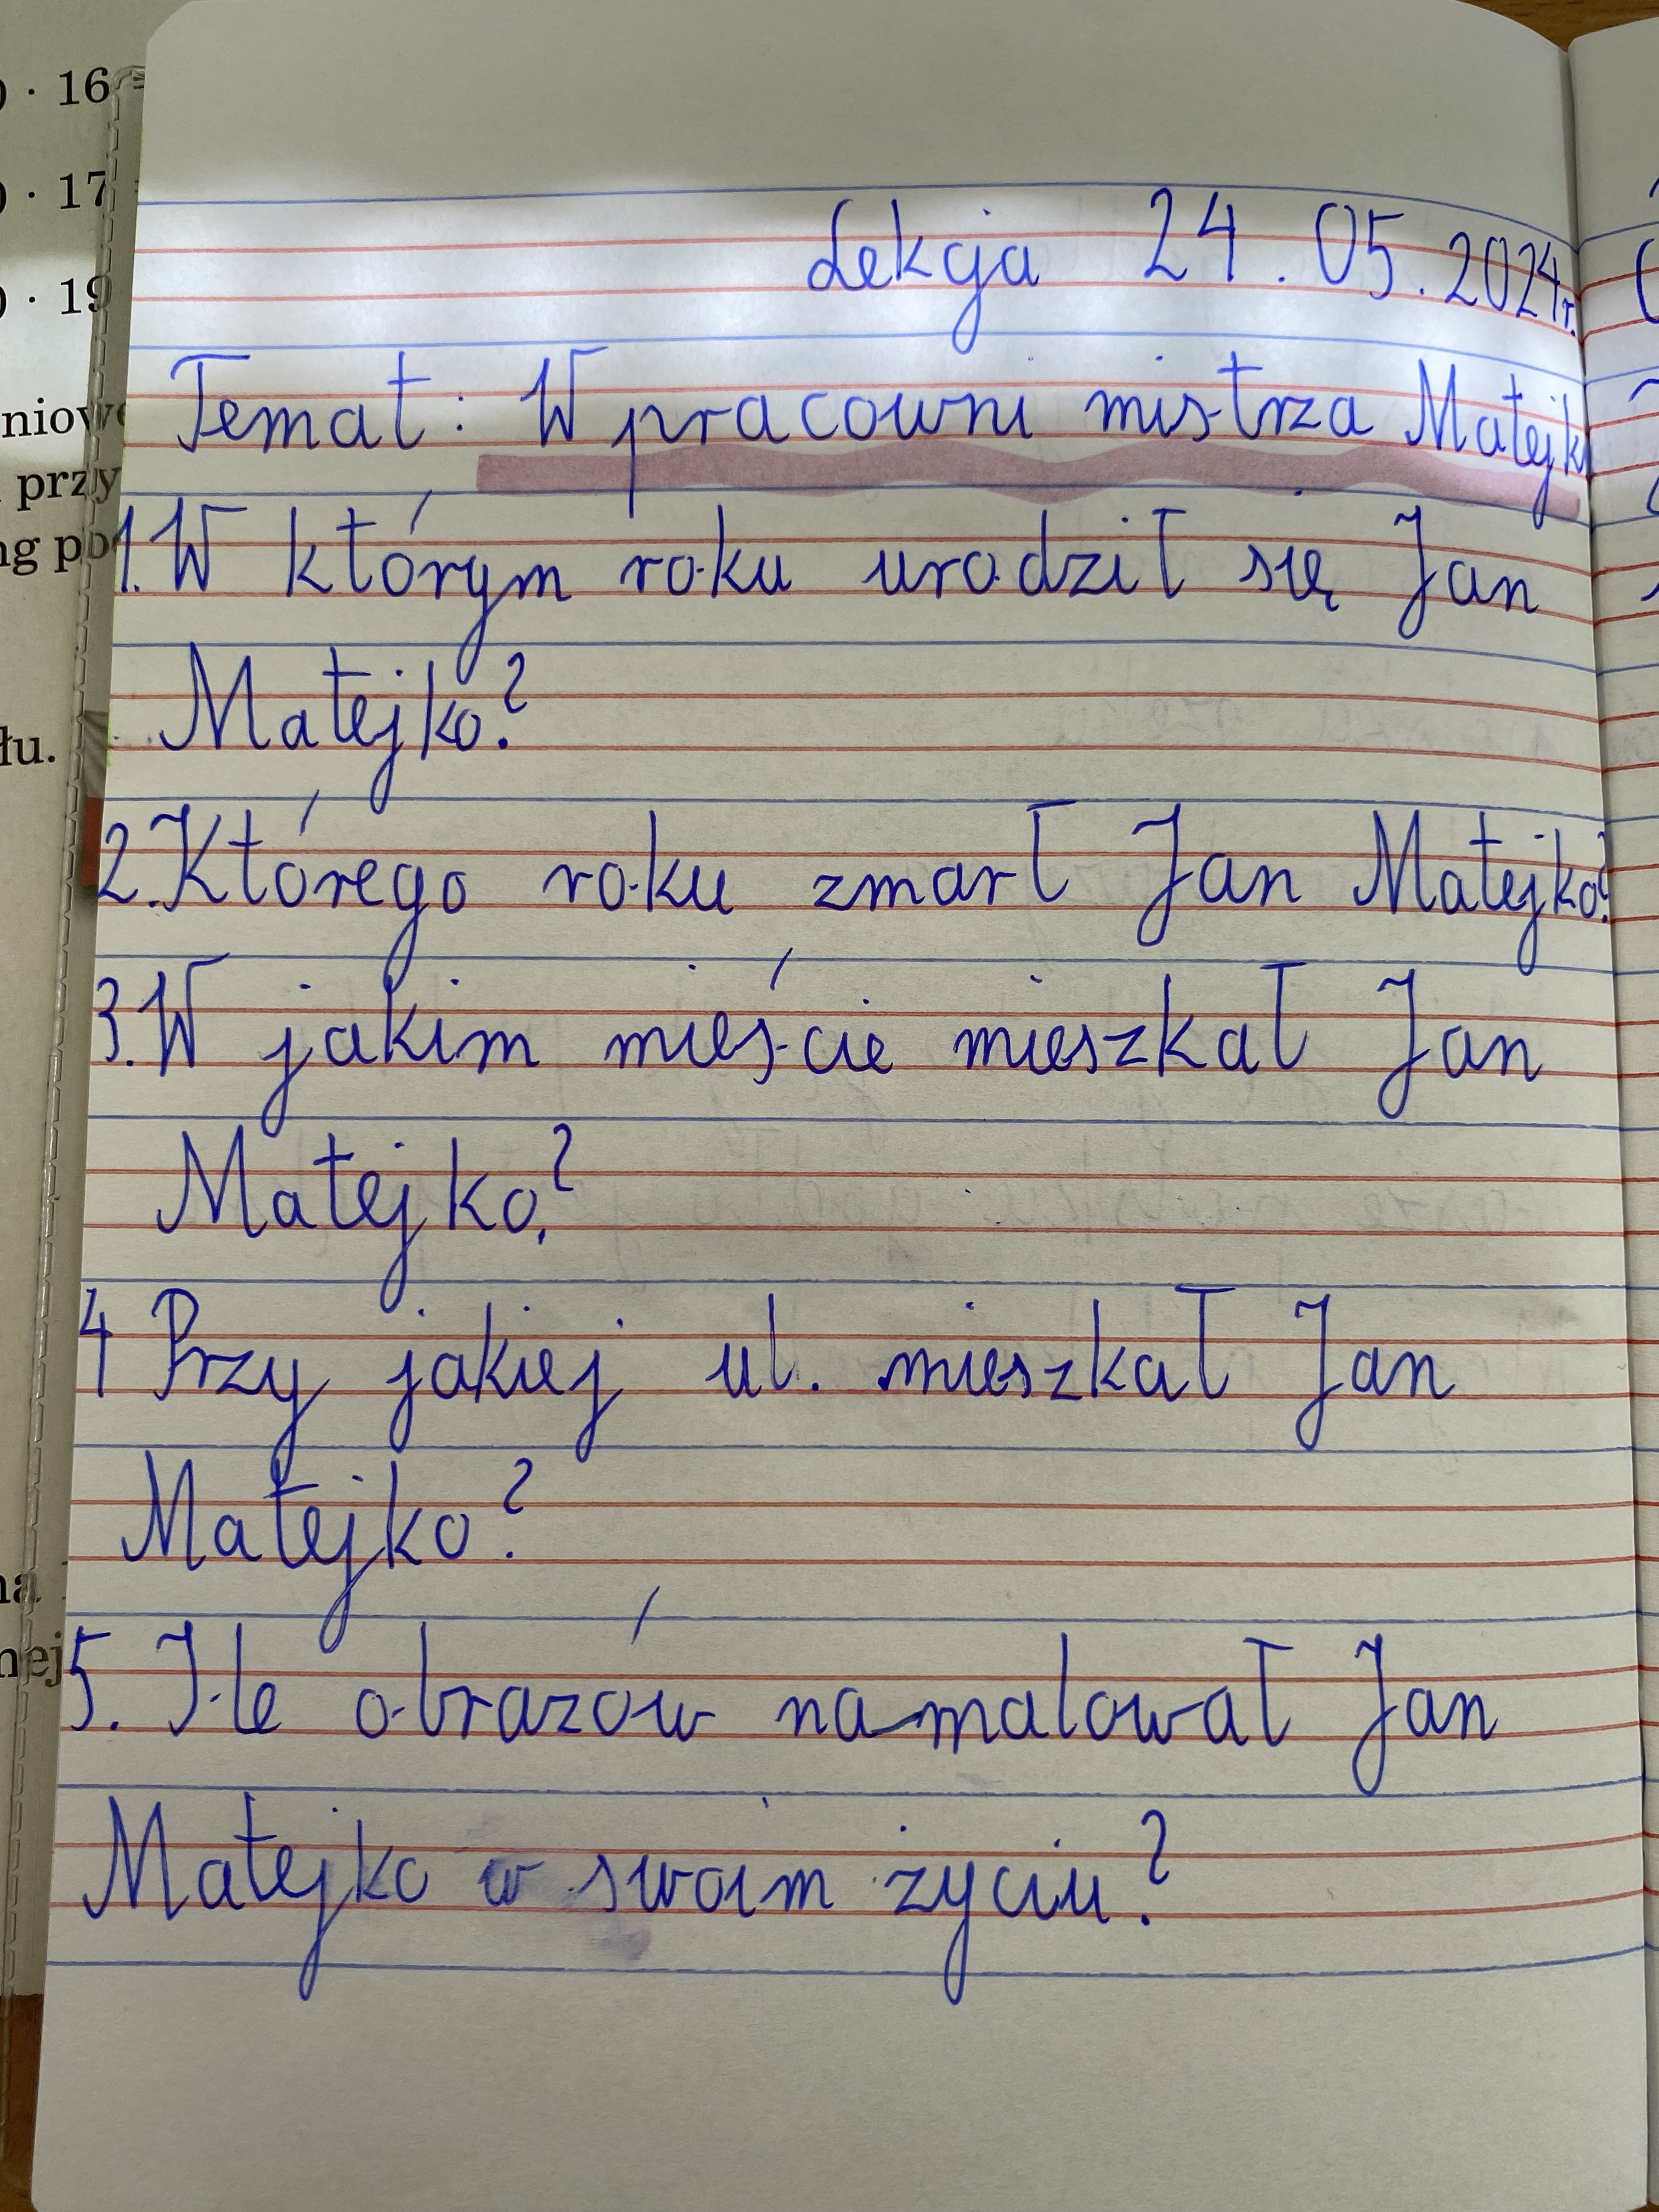 Lekcja 24.05.2024r.
Temat: W pracowni mistrza
1. W którym roku urodził się Jan
Matejko?
2. Którego roku zmarł Jan Matejko?
3. W jakim mieście mieszkał Jan
Matejko?
4 Przy jakiej ul. mieszkał Jan
Matejko?
5. Ile obrazów namalował Jan
Matejko w swoim życiu?
· 16
· 17
· 19
przy
łu.